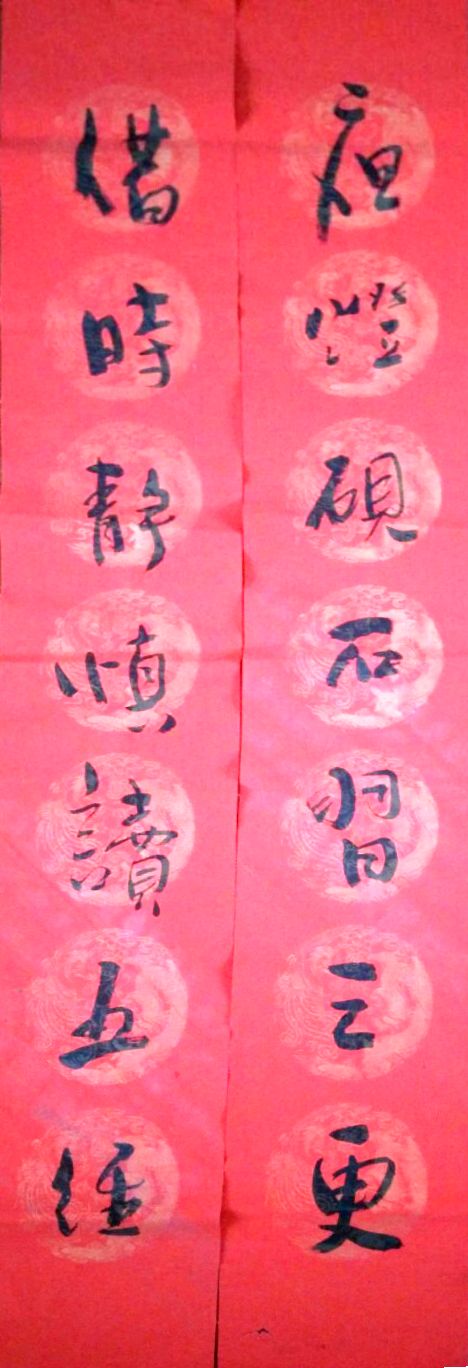 燈硯石習三更
借時靜慎讀五經